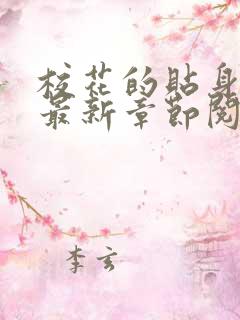 校花的贴身
最新章节阅
李玄